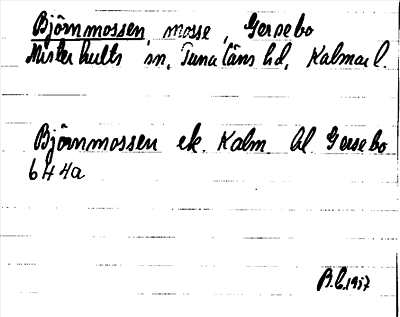 Björnmossen, mosse, Gersebo
Misterhults sn, Tunaläns hd, Kalmar l.
Björnmossen ek. Kalm Al Gersebo
6H 4a
B.C. 1957